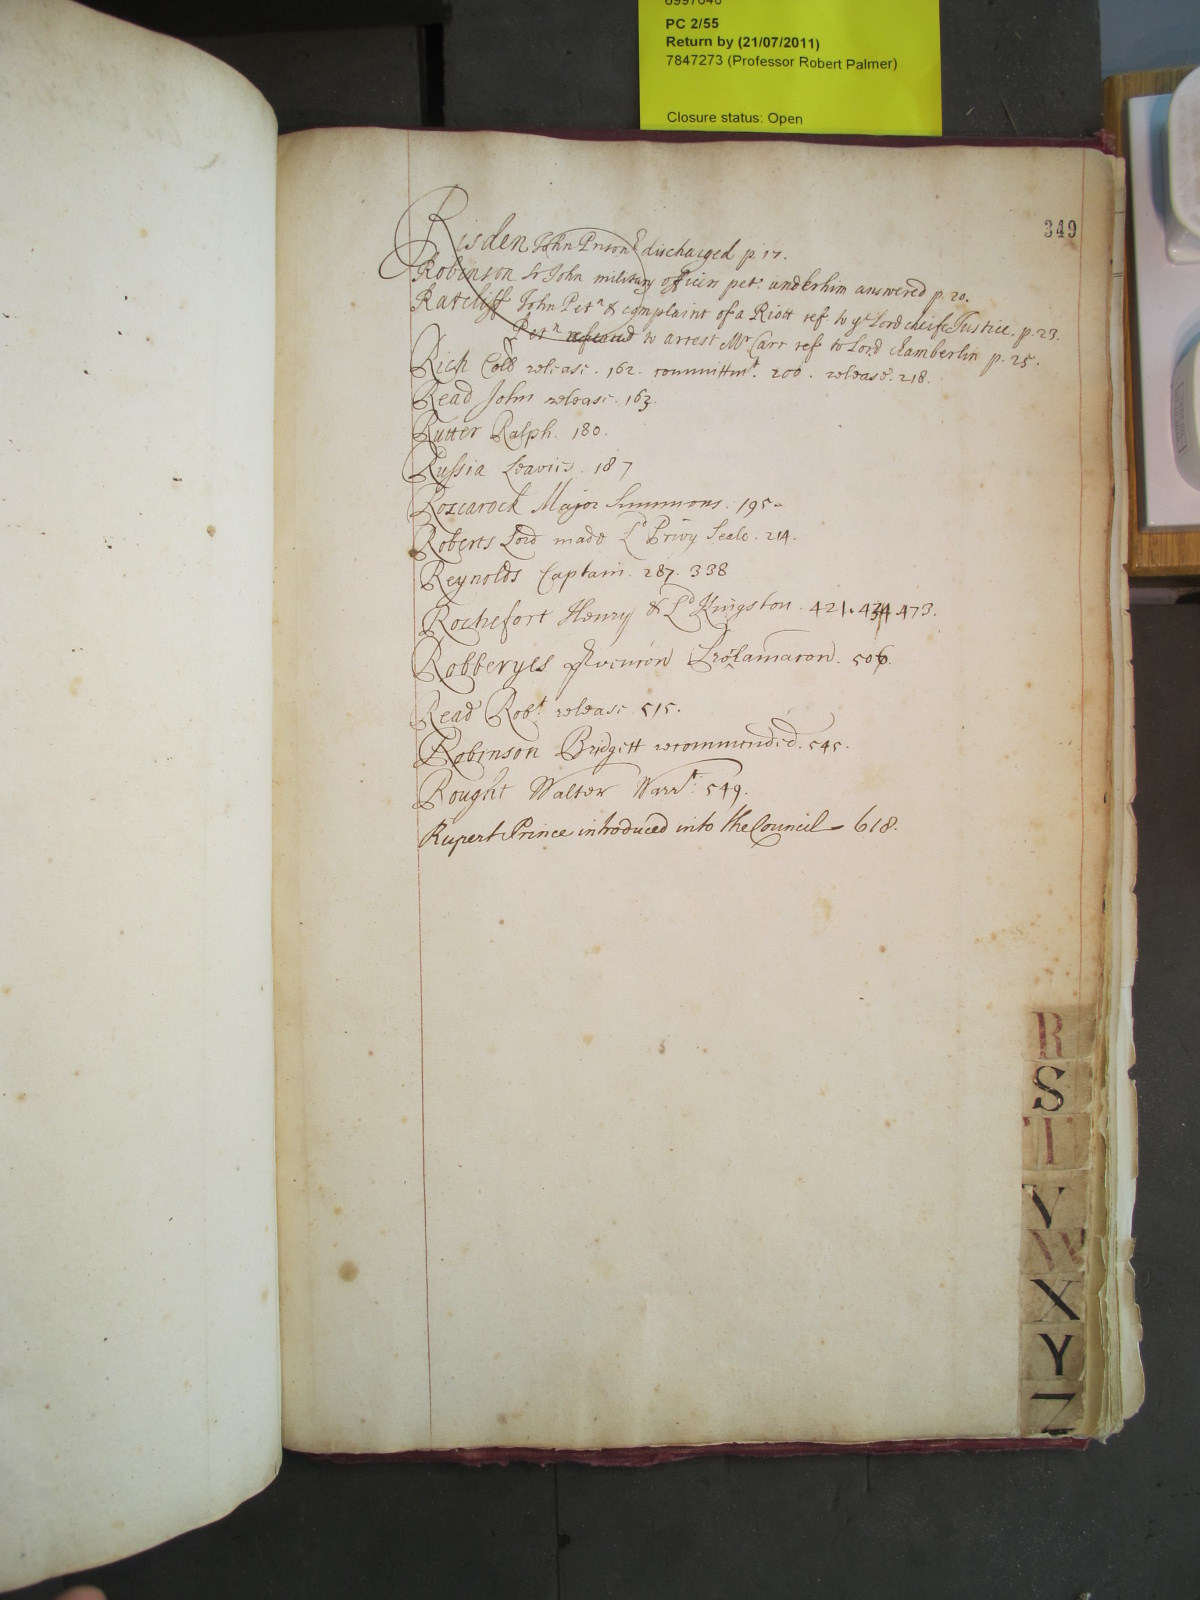 6997646
PC 2/55
Return by (21/07/2011)
7847273 (Professor Robert Palmer)
Closure status: Open
349
Risden John Prisonr discharged p. 17.
Robinson Sr John military officers petr under him answered p. 20.
Ratcliff John Petn & complaint of a Riott ref. to ye Lord cheife Justice. p. 23.
Petn to arrest Mr Carr ref to Lord Chamberlin p. 25.
Rich Coll release. 162. committmt. 200. release. 218.
Read John release. 163.
Rutter Ralph. 180.
Russia 187
Roscarock Major Summons. 195.
Roberts Lord made Ld Privy Seale. 214.
Reynolds Captain. 287. 338
Rochefort Henry & Ld Kingston. 421. 434. 473.
Robberyes 506.
Read Robt. release 515.
Robinson Bridgett recommended. 545.
Rought Walter Warrt. 549.
Rupert Prince introduced into the Council 618.
R
S
T
V
W
X
Y
Z